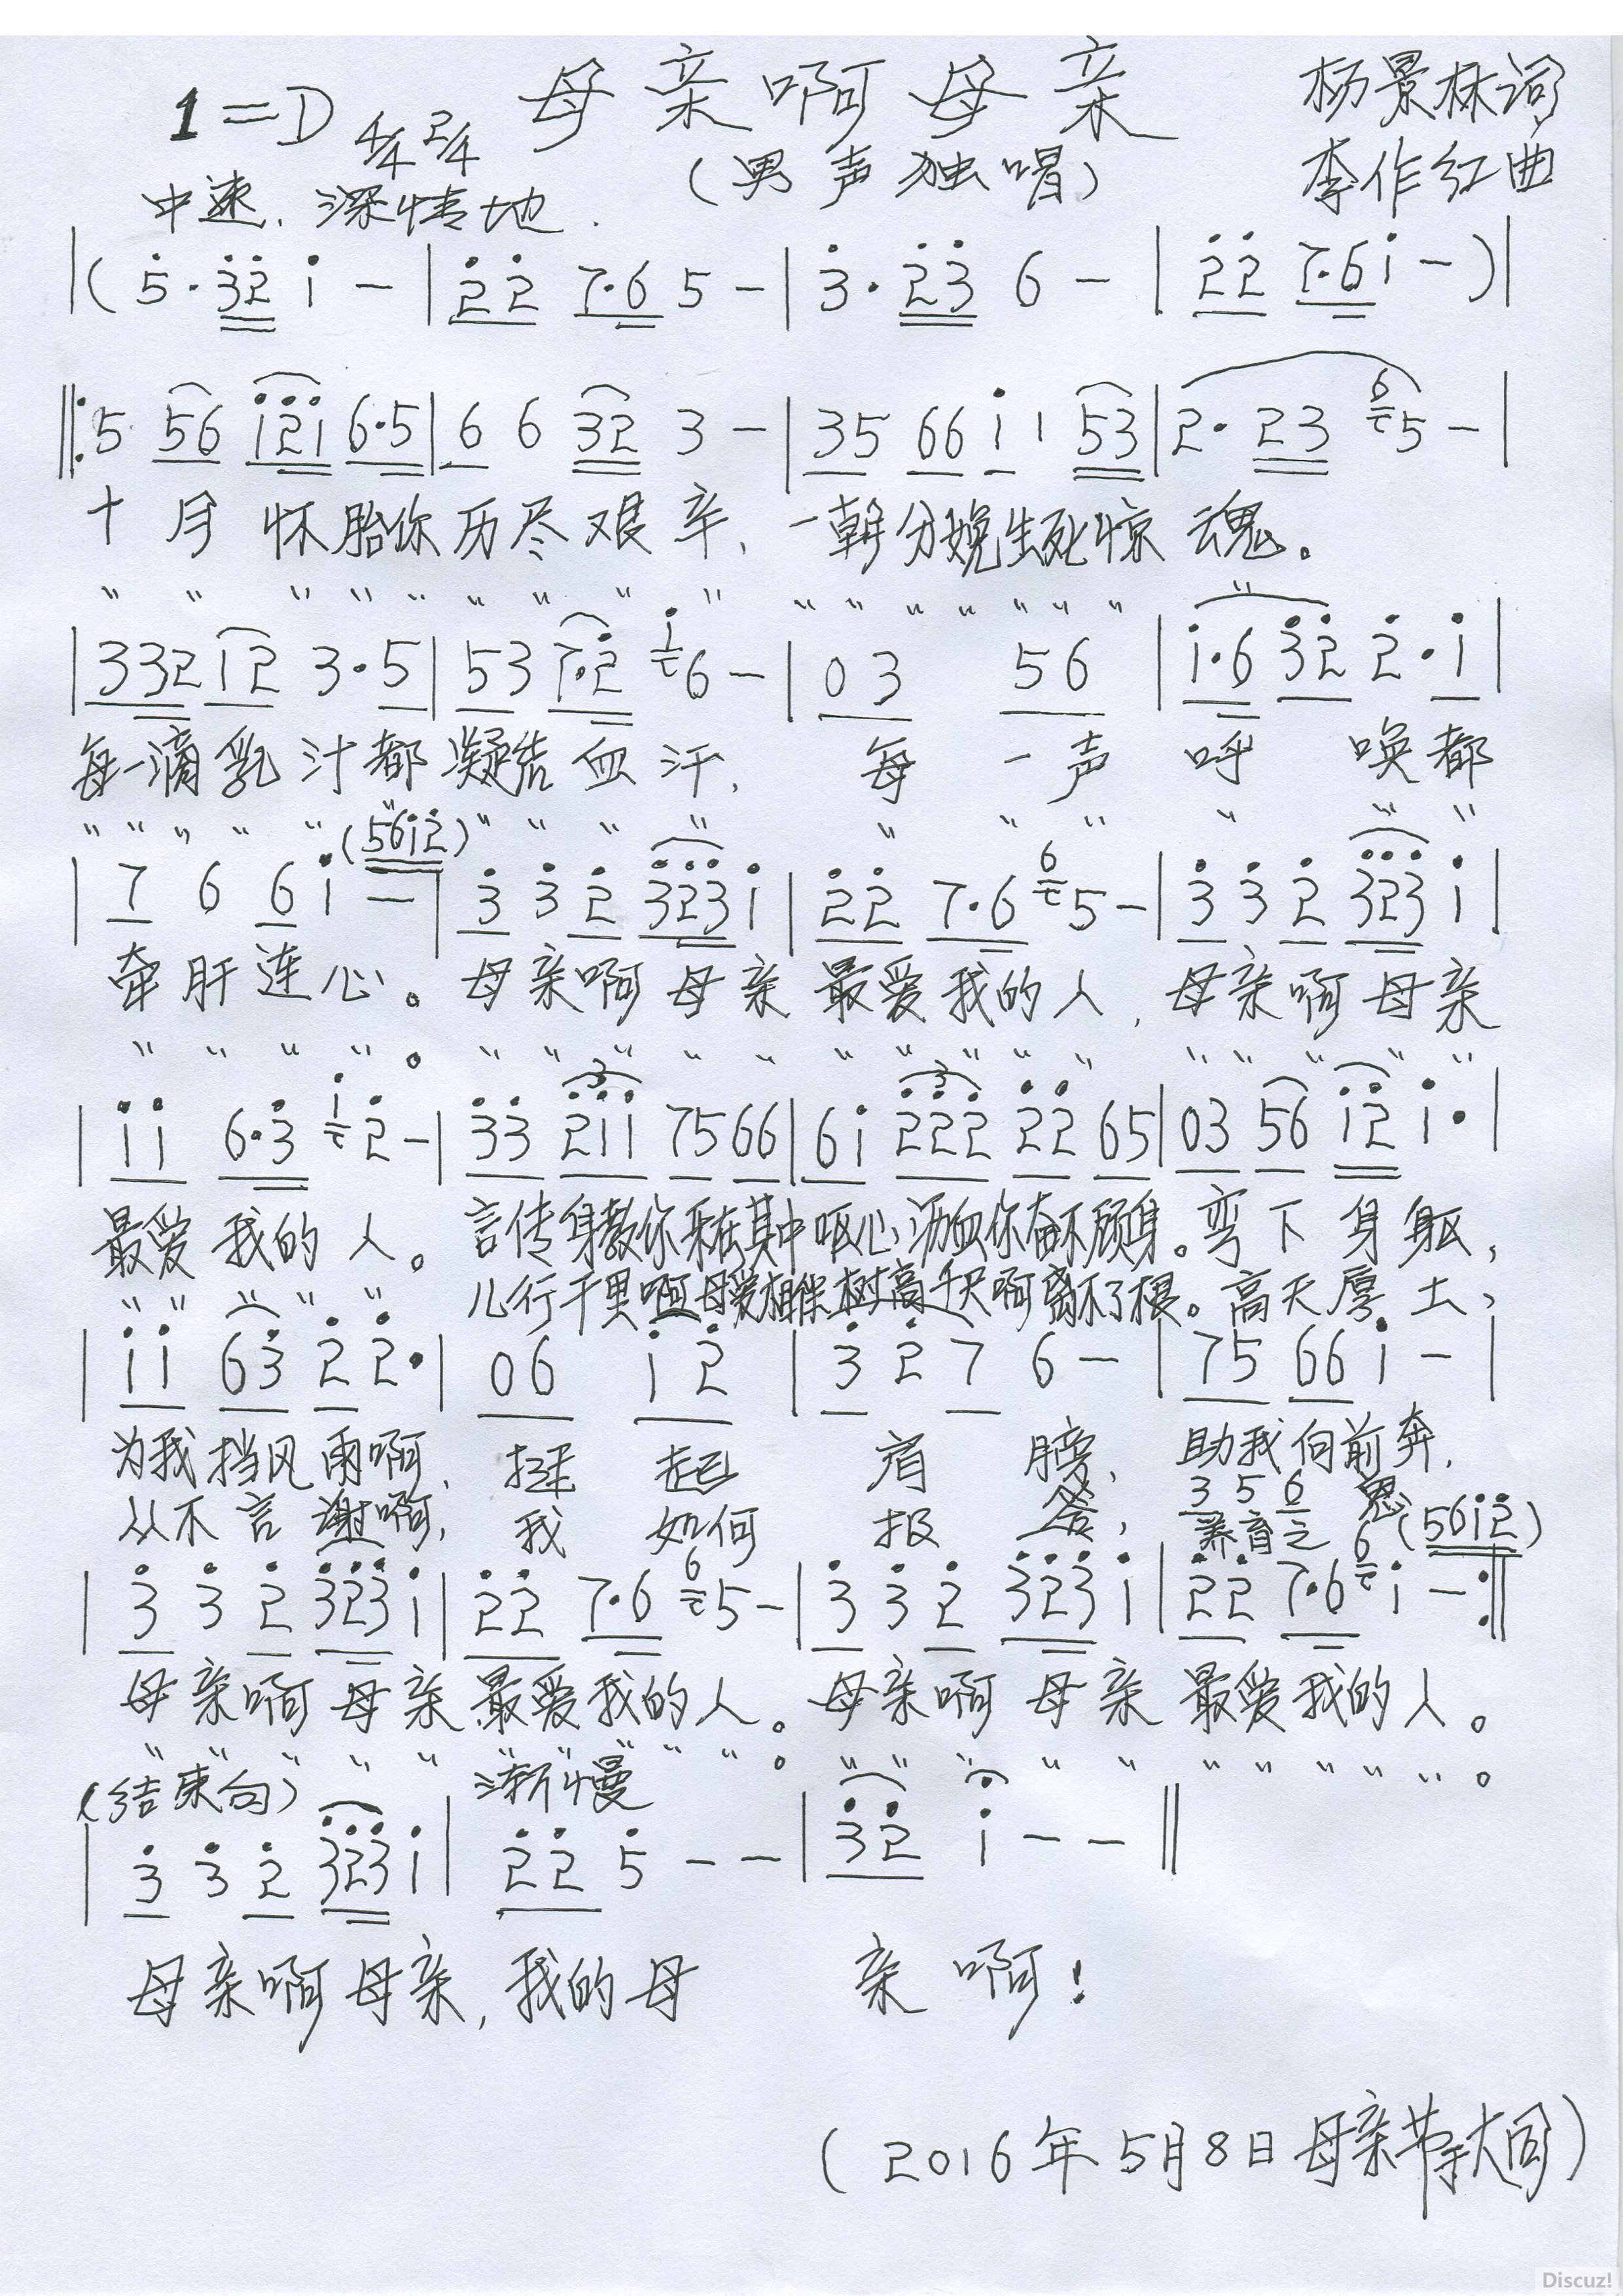 1=D 4/4 2/4 母亲啊母亲 杨景林词
中速.深情地. (男声独唱) 李作红曲
|( 5̇ · 3̇2̇ i̇ - | 2̇2̇ 7·6 5 - | 3̇ · 2̇3̇ 6 - | 2̇2̇ 7·6 i̇ - )|
‖: 5 56 i̇2̇i̇ 6·5 | 6 6 32 3 - | 35 66 i̇ i 53 | 2· 23 6 5 - |
十月怀胎你历尽艰辛、一朝分娩生死惊魂。
" " " " " " " " " " " " " " " " "
| 332 12 3·5 | 53 7·2̇ i̇ 6 - | 03 56 | i̇·6 3̇2̇ 2̇·i̇ |
每一滴乳汁都凝结血汗、每一声呼唤都
" " " " " (56i̇2̇) " " " " " " " " " "
| 7 6 6 i̇ - | 3̇ 3̇ 2̇ 3̇2̇3̇ i̇ | 2̇2̇ 7·6 6 5 - | 3̇ 3̇ 2̇ 3̇2̇3̇ i̇ |
牵肝连心。母亲啊母亲最爱我的人,母亲啊母亲
" " " " 。 " " " " " " " " " " " " " " "
| i̇i̇ 6·3̇ i̇ 2̇ - | 3̇3̇ 2̇i̇i̇ 75 66 | 6i̇ 2̇2̇2̇ 2̇2̇ 65 | 03 56 i̇2̇ i̇· |
最爱我的人。言传身教你乐在其中呕心沥血你奋不顾身。弯下身躯,
" " " " " 儿行千里啊母爱相伴树高千尺啊离不了根。高天厚土,
| i̇i̇ 63̇ 2̇ 2̇· | 06 i̇2̇ | 3̇ 2̇ 7 6 - | 75 66 i̇ - |
为我挡风雨啊、挺起肩膀、助我向前奔.
从不言谢啊,我如何报答, 3 5 6 养育之恩 (56i̇2̇)
| 3̇ 3̇ 2̇ 3̇2̇3̇ i̇ | 2̇2̇ 7·6 6 5 - | 3̇ 3̇ 2̇ 3̇2̇3̇ i̇ | 2̇2̇ 7·6 6 i̇ - :‖
母亲啊母亲最爱我的人。母亲啊母亲最爱我的人。
" " " " " " " " " " 。 " " " " " " " " " " 。
(结束句) 渐慢
| 3̇ 3̇ 2̇ 3̇2̇3̇ i̇ | 2̇2̇ 5̇ - - | 3̇2̇ i̇ - - ‖
母亲啊母亲,我的母亲啊!
(2016年5月8日母亲节于大同)
Discuz!